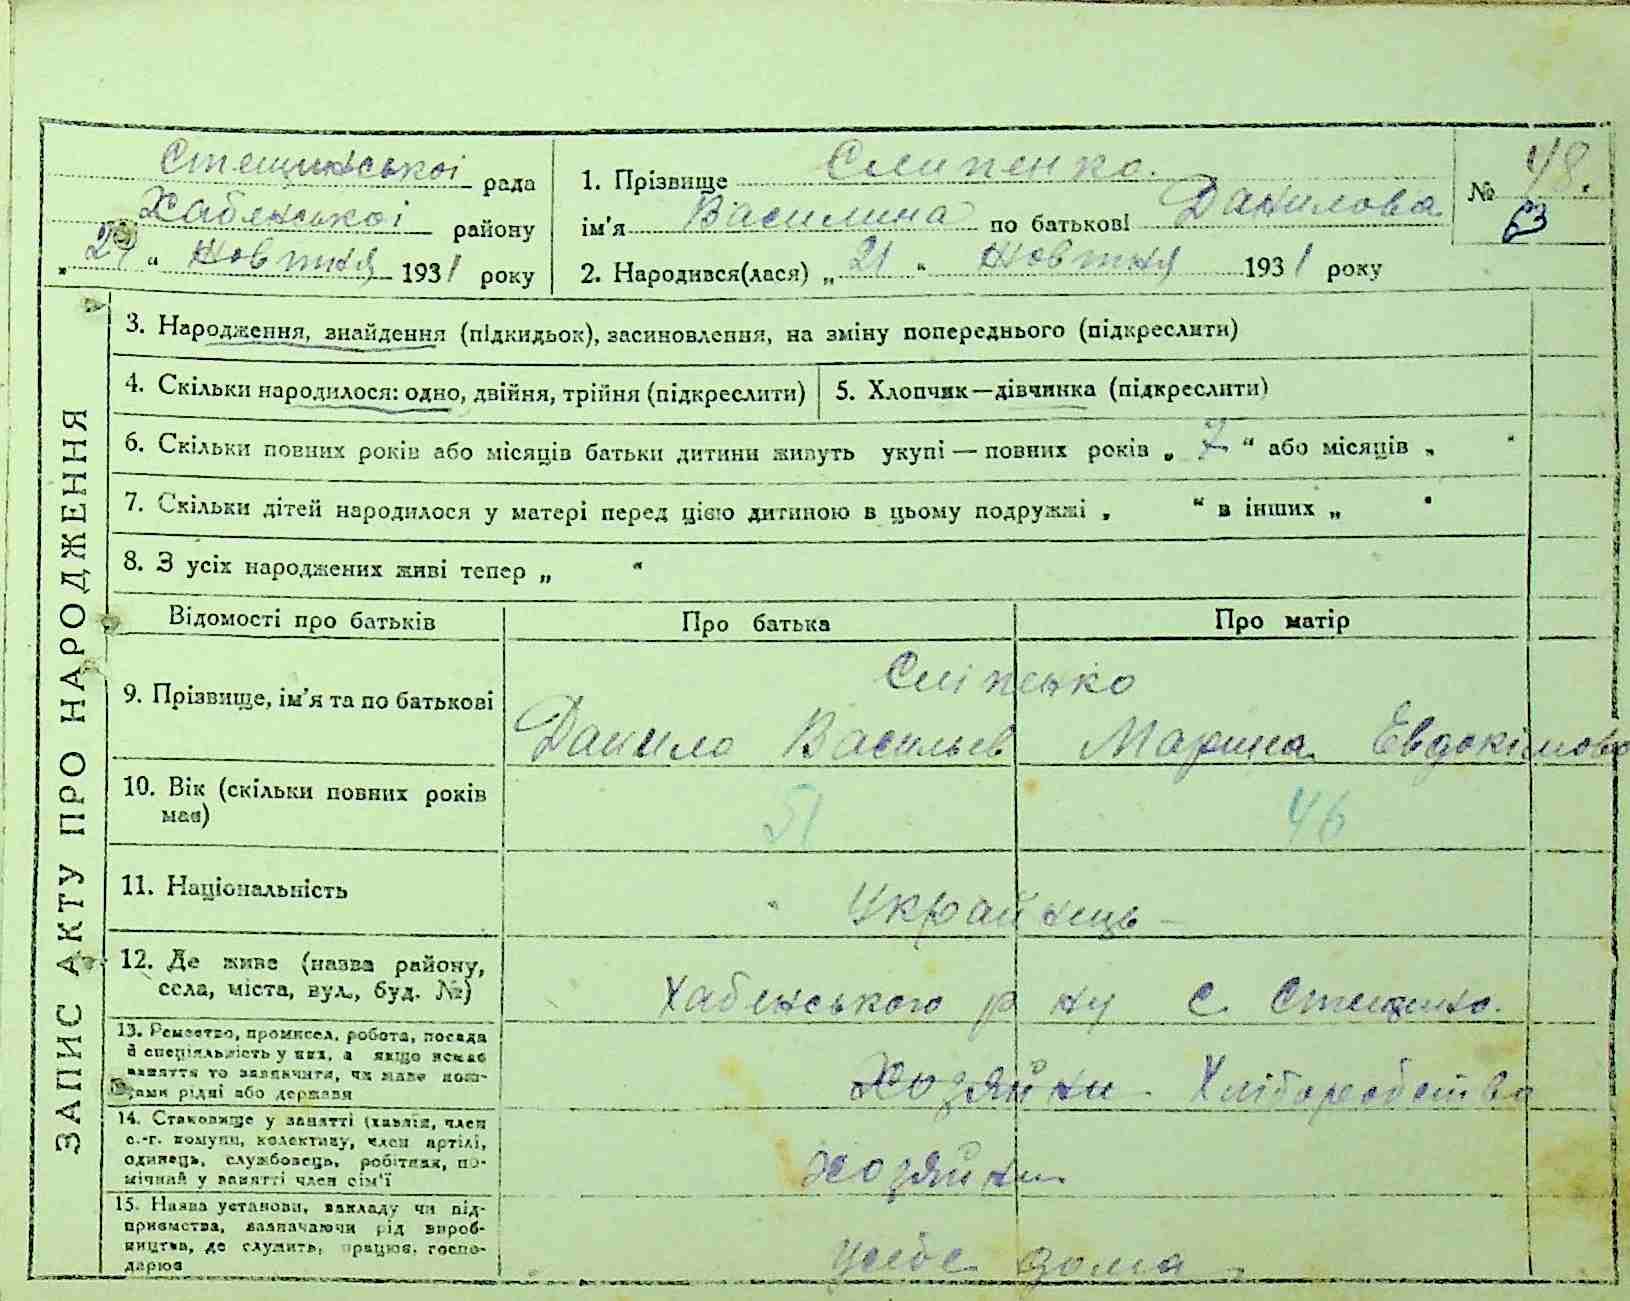 ЗАПИС АКТУ ПРО НАРОДЖЕННЯ
Стещинської рада
Хабенської району
„ 29 “ жовтня 1931 року
1. Прізвище Слипенко.
ім'я Василина по батькові Данилова
2. Народився(лася) „ 21 “ жовтня 1931 року
№ 48.
63
3. Народження, знайдення (підкидьок), засиновлення, на зміну попереднього (підкреслити)
4. Скільки народилося: одно, двійня, трійня (підкреслити)
5. Хлопчик—дівчинка (підкреслити)
6. Скільки повних років або місяців батьки дитини живуть укупі — повних років „ 7 “ або місяців „ “
7. Скільки дітей народилося у матері перед цією дитиною в цьому подружжі „ “ в інших „ “
8. З усіх народжених живі тепер „ “
Відомості про батьків
Про батька
Про матір
9. Прізвище, ім'я та по батькові
Сліпенько
Данило Васильев
Марина Евдокімова
10. Вік (скільки повних років має)
51
46
11. Національність
Украйнець
12. Де живе (назва району, села, міста, вул., буд. №)
Хабенського р ну с. Стещино.
13. Ремество, промисел, робота, посада й спеціяльність у них, а якщо немає заняття то зазначити, чи живе коштами рідні або держави
Хозяйни Хліборобство
14. Становище у занятті (хазяїн, член с.-г. комуни, колективу, член артілі, одинець, службовець, робітник, помічний у занятті член сім'ї
хозяйни
15. Назва установи, закладу чи підприємства, зазначаючи рід виробництва, де служить, працює, господарює
усебе дома